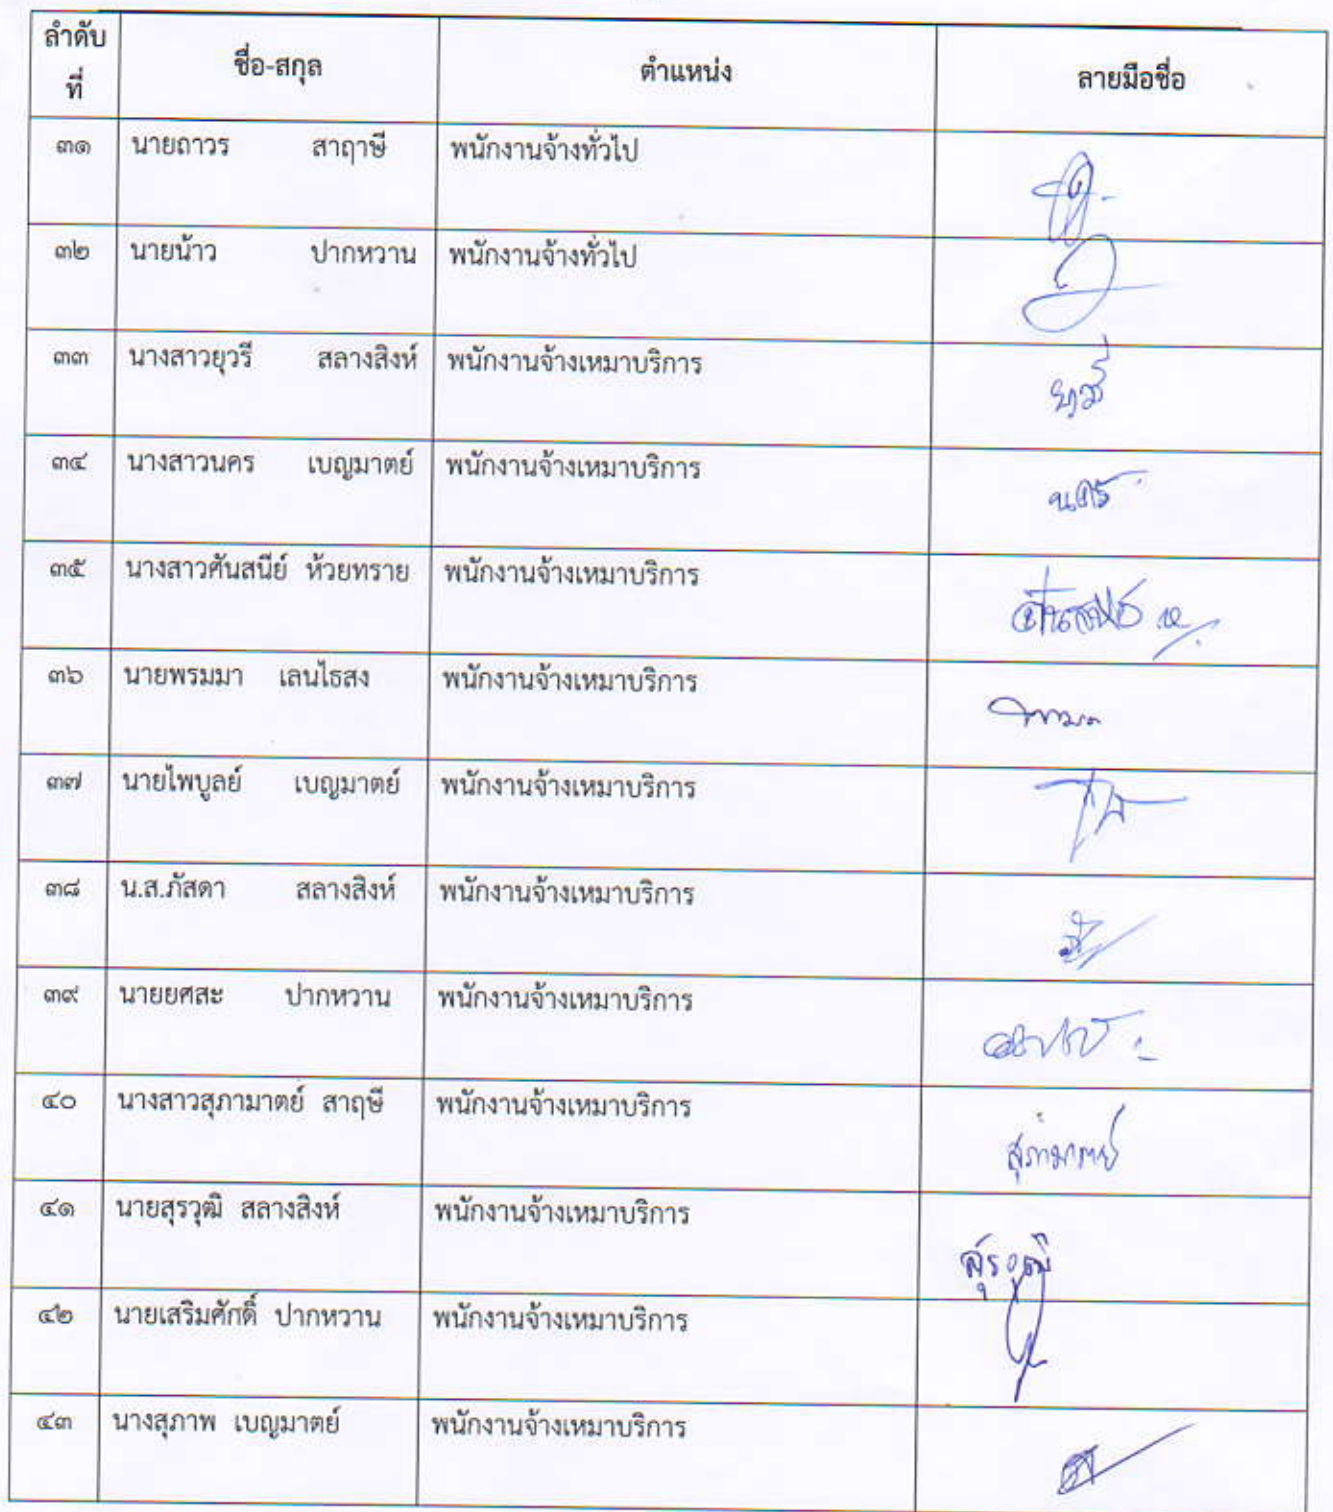 ลำดับที่ ชื่อ-สกุล ตำแหน่ง ลายมือชื่อ
๓๑ นายถาวร สาฤาษี พนักงานจ้างทั่วไป
๓๒ นายน้าว ปากหวาน พนักงานจ้างทั่วไป
๓๓ นางสาวยุวรี สลางสิงห์ พนักงานจ้างเหมาบริการ ยุวรี
๓๔ นางสาวนคร เบญมาตย์ พนักงานจ้างเหมาบริการ นคร
๓๕ นางสาวศันสนีย์ ห้วยทราย พนักงานจ้างเหมาบริการ
๓๖ นายพรมมา เลนไธสง พนักงานจ้างเหมาบริการ
๓๗ นายไพบูลย์ เบญมาตย์ พนักงานจ้างเหมาบริการ
๓๘ น.ส.ภัสดา สลางสิงห์ พนักงานจ้างเหมาบริการ
๓๙ นายยศสะ ปากหวาน พนักงานจ้างเหมาบริการ
๔๐ นางสาวสุภามาตย์ สาฤษี พนักงานจ้างเหมาบริการ สุภามาตย์
๔๑ นายสุรวุฒิ สลางสิงห์ พนักงานจ้างเหมาบริการ สุรวุฒิ
๔๒ นายเสริมศักดิ์ ปากหวาน พนักงานจ้างเหมาบริการ
๔๓ นางสุภาพ เบญมาตย์ พนักงานจ้างเหมาบริการ